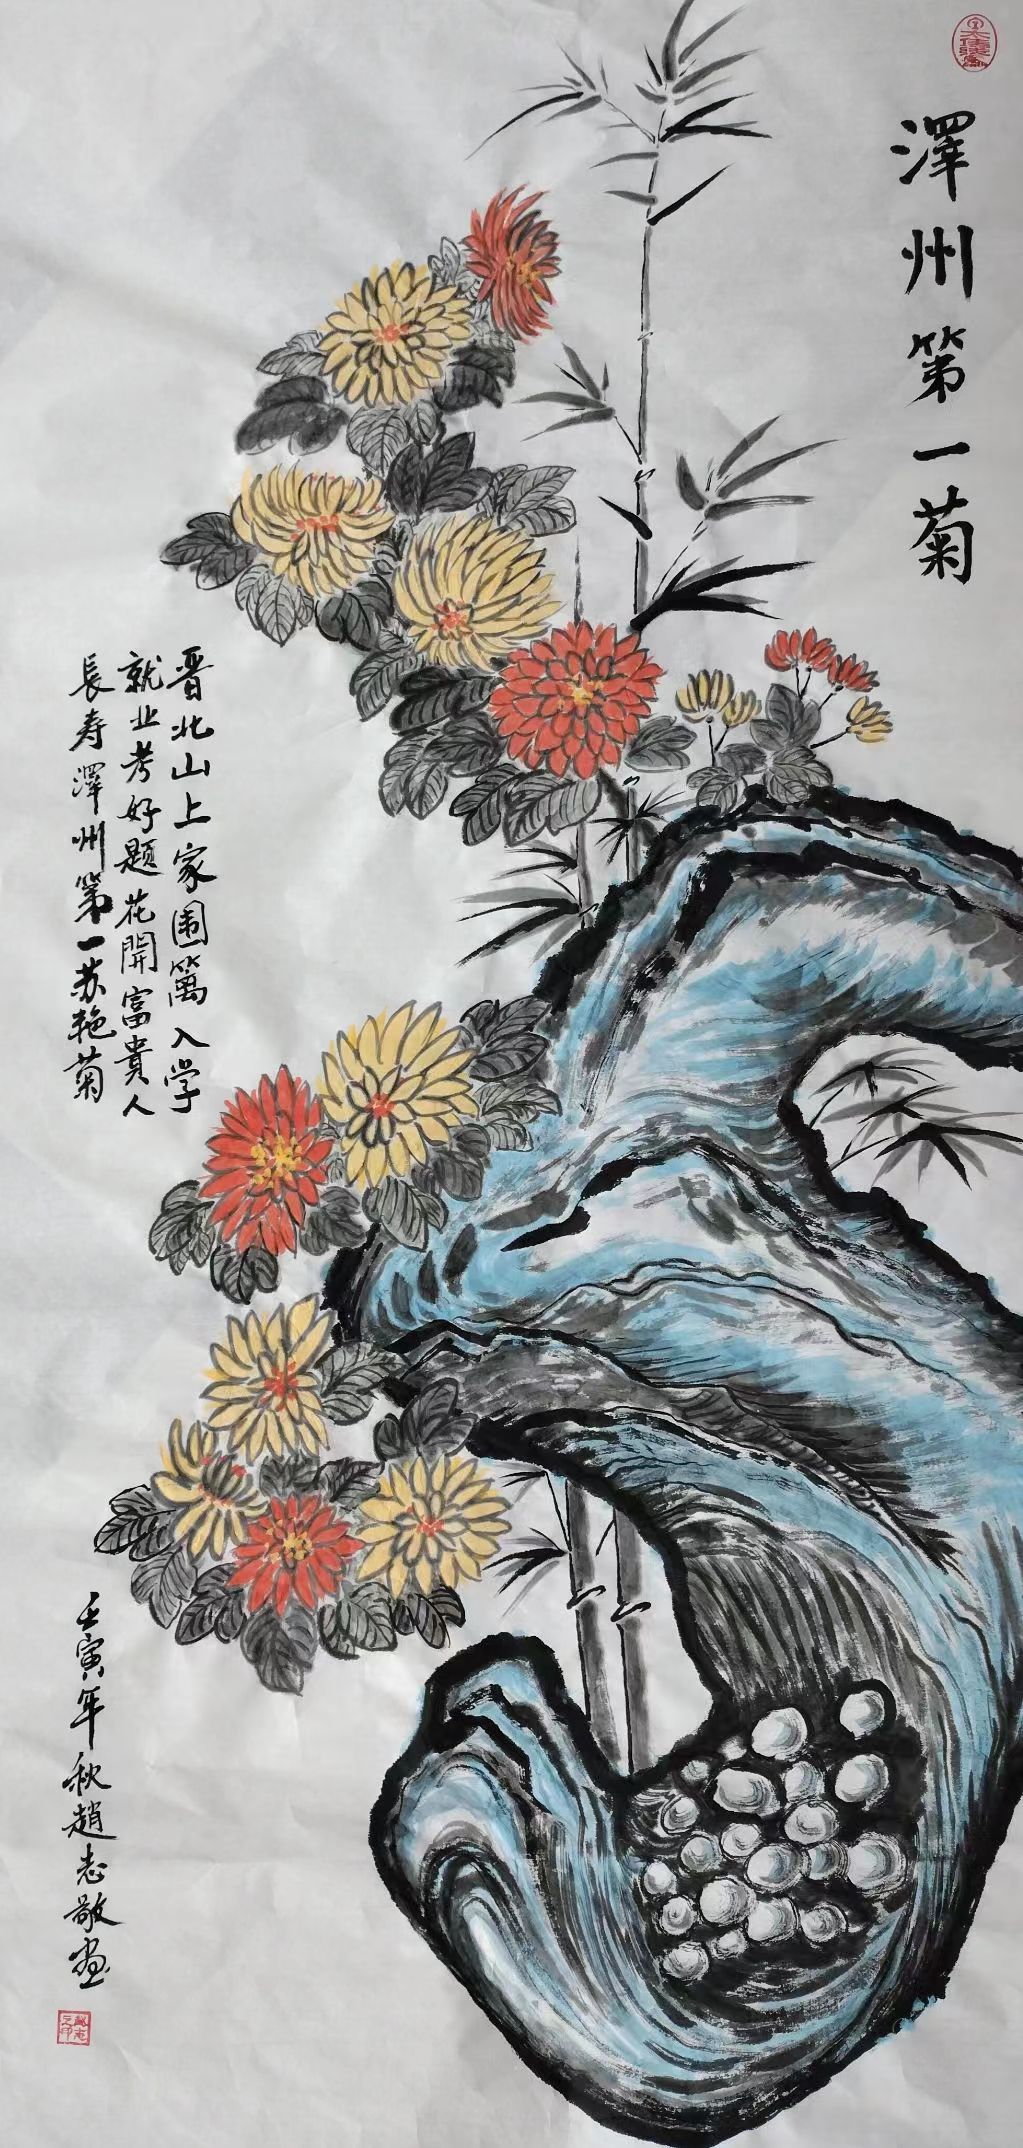 澤州第一菊
晋北山上家围篱入学
就业考好题花開富貴人
長寿澤州第一苏艳菊
壬寅年秋趙志敬画